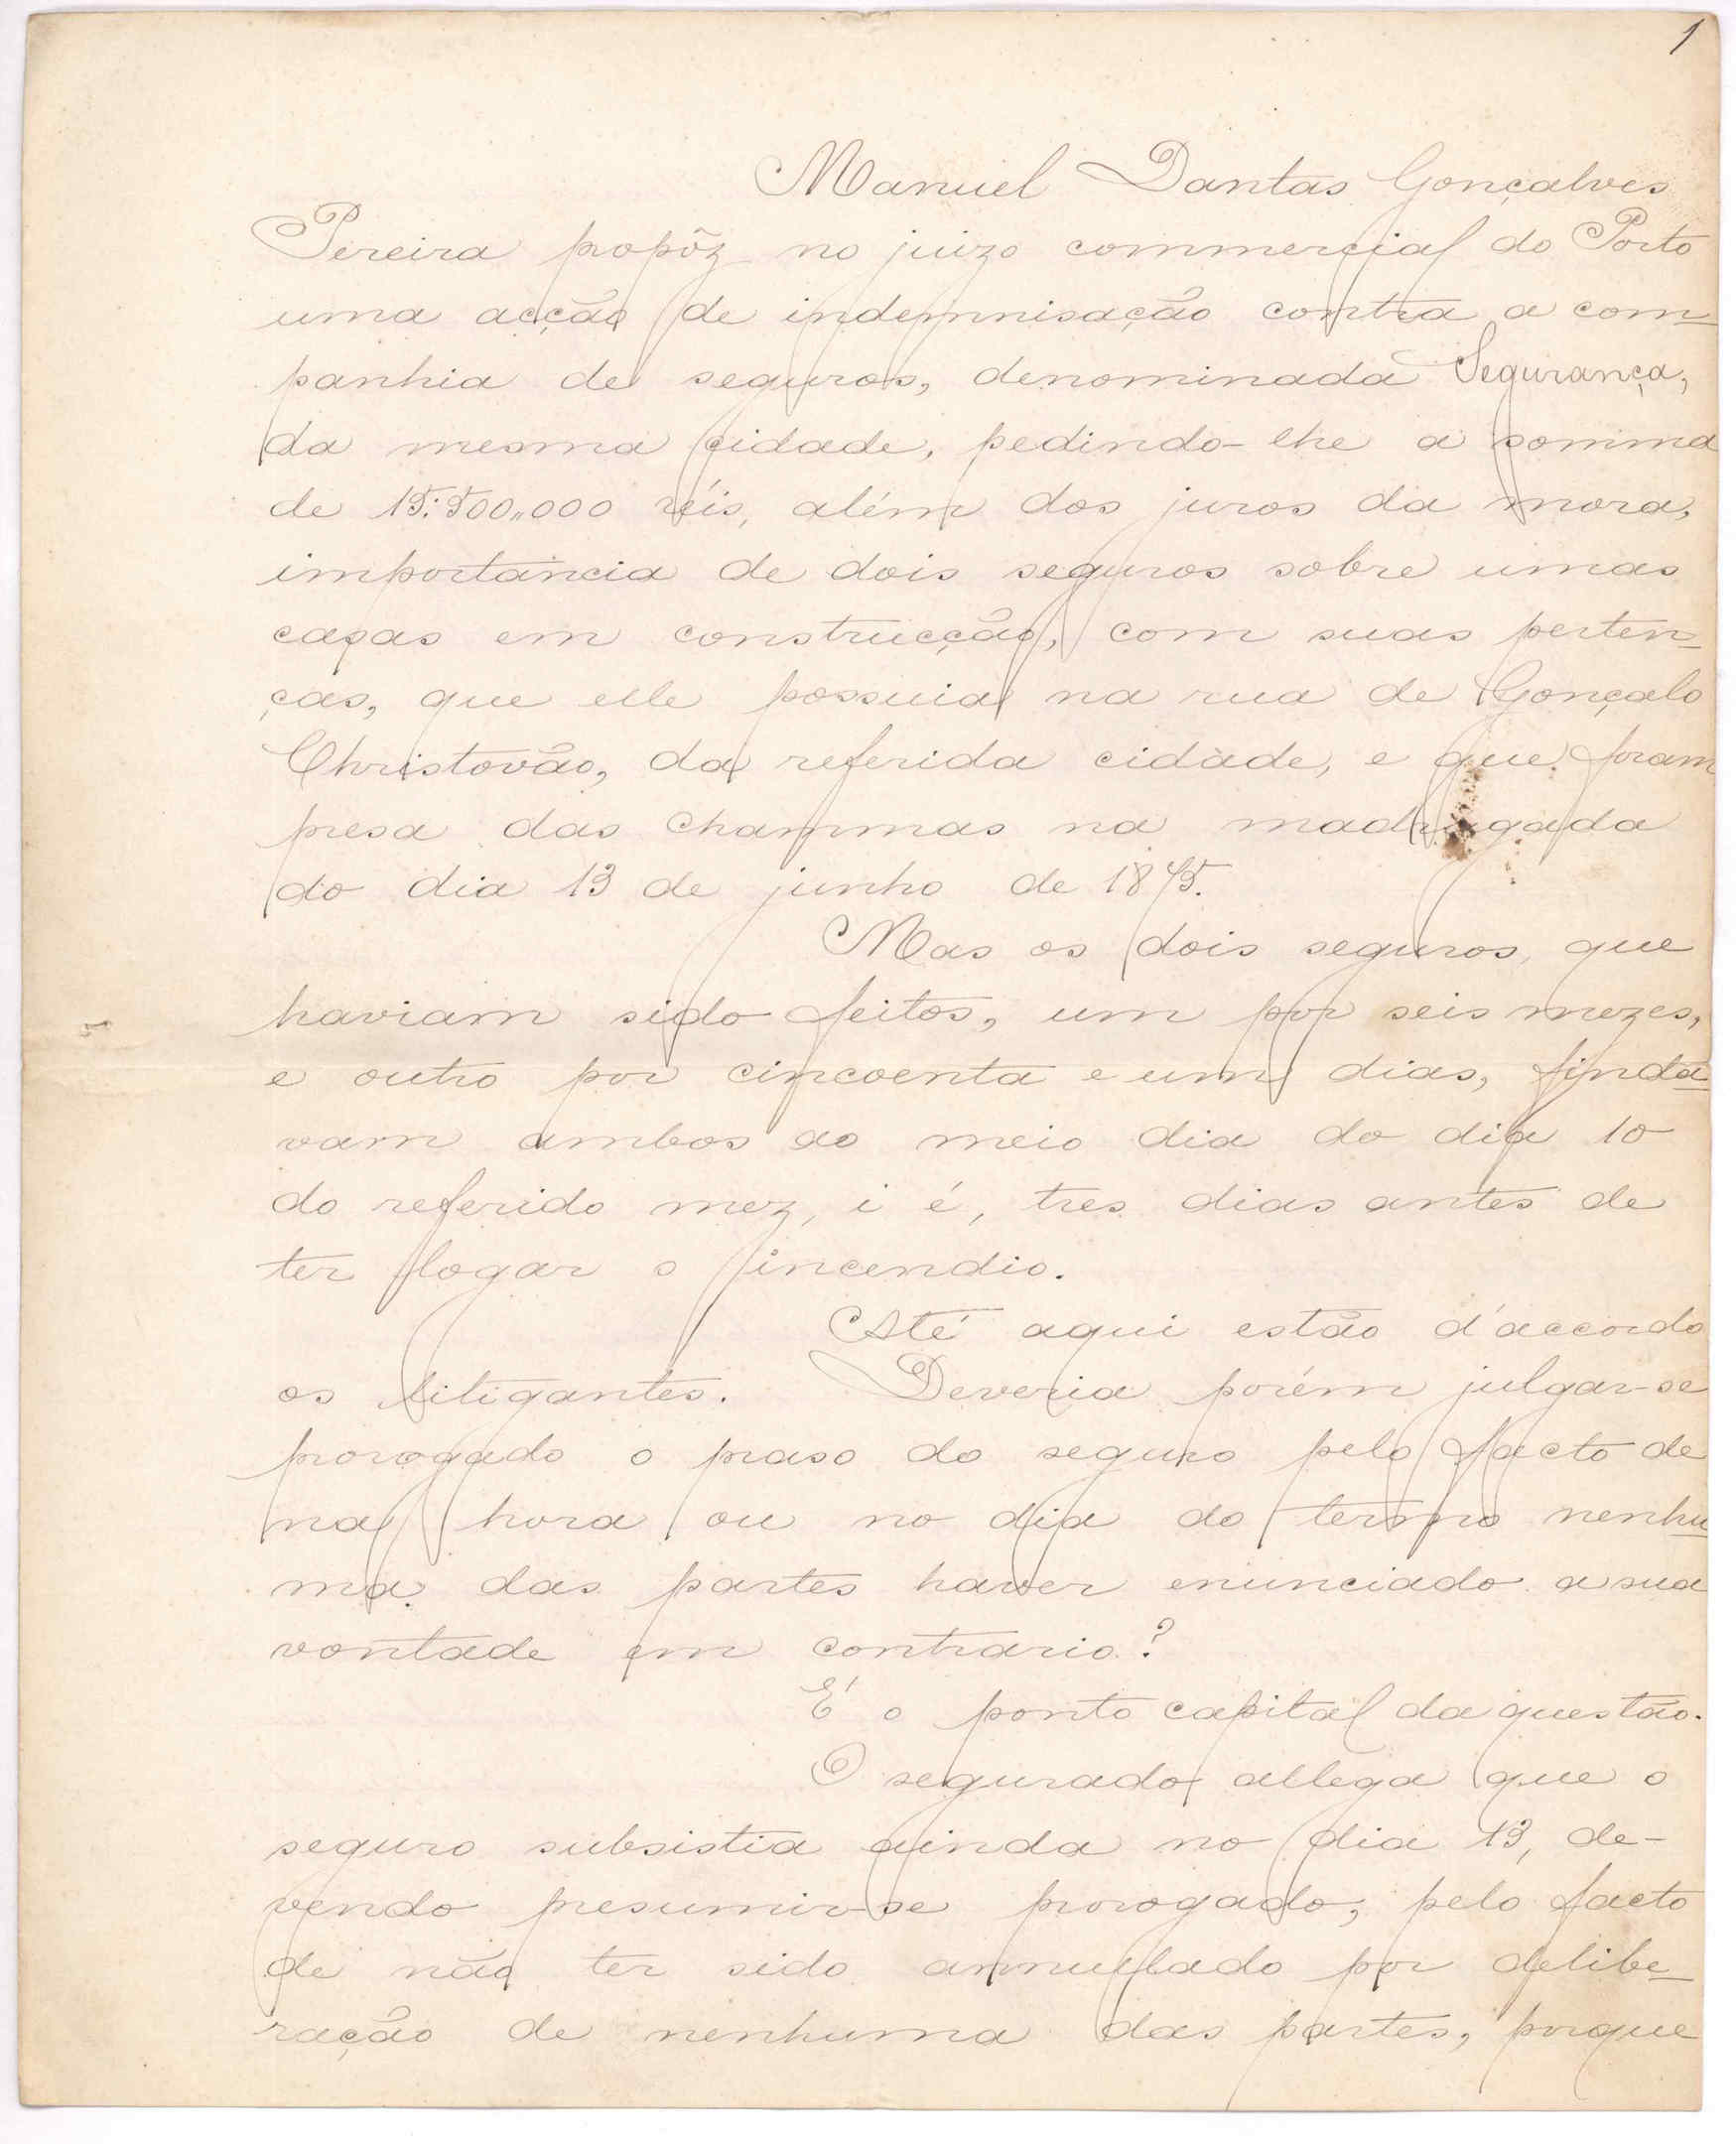 1
Manuel Dantas Gonçalves
Pereira propôz no juizo commercial do Porto
uma acção de indemnisação contra a com-
panhia de seguros, denominada Segurança,
da mesma cidade, pedindo-lhe a somma
de 15:500,,000 réis, além dos juros da mora,
importancia de dois seguros sobre umas
casas em construcção, com suas perten-
ças, que elle possuia na rua de Gonçalo
Christovão, da referida cidade, e que foram
presa das chammas na madrugada
do dia 13 de junho de 1875.
Mas os dois seguros, que
haviam sido feitos, um por seis mezes,
e outro por cincoenta e um dias, finda-
vam ambos ao meio dia do dia 10
do referido mez, i é, tres dias antes de
ter logar o incendio.
Até aqui estão d'accordo
os litigantes. Deveria porém julgar-se
prorogado o praso do seguro pelo facto de
na hora ou no dia do termo nenhu-
ma das partes haver enunciado a sua
vontade em contrario?
É o ponto capital da questão.
O segurado allega que o
seguro subsistia ainda no dia 13, de-
vendo presumir-se prorogado, pelo facto
de não ter sido annullado por delibe-
ração de nenhuma das partes, porque